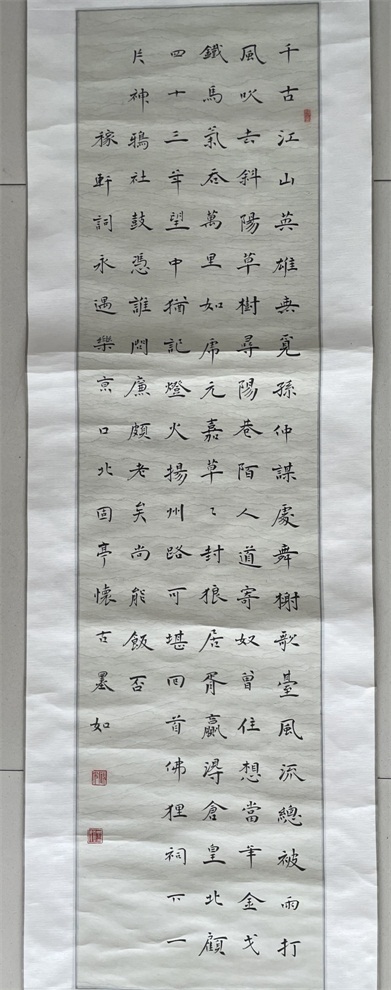 千古江山英雄無覓孫仲謀處舞榭歌臺風流總被雨打
風吹去斜陽草樹尋陽巷陌人道寄奴曾住想當年金戈
鐵馬氣吞萬里如虎元嘉草〻封狼居胥贏淂倉皇北顧
四十三年望中猶記燈火揚州路可堪回首佛狸祠下一
片神鴉社鼓憑誰問廉頗老矣尚能飯否
稼軒詞永遇樂京口北固亭懷古墨如